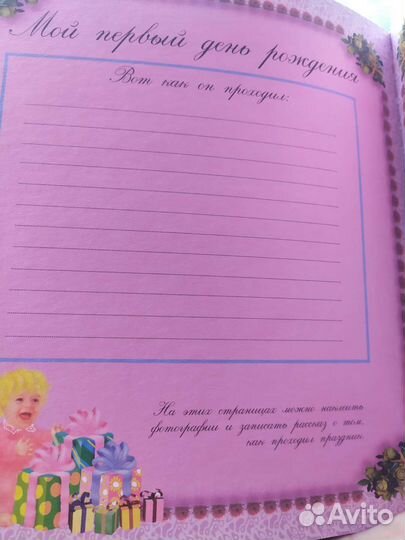 Мой первый день рождения
Вот как он проходил:
На этих страницах можно наклеить
фотографии и записать рассказ о том,
как проходил праздник.
Avito